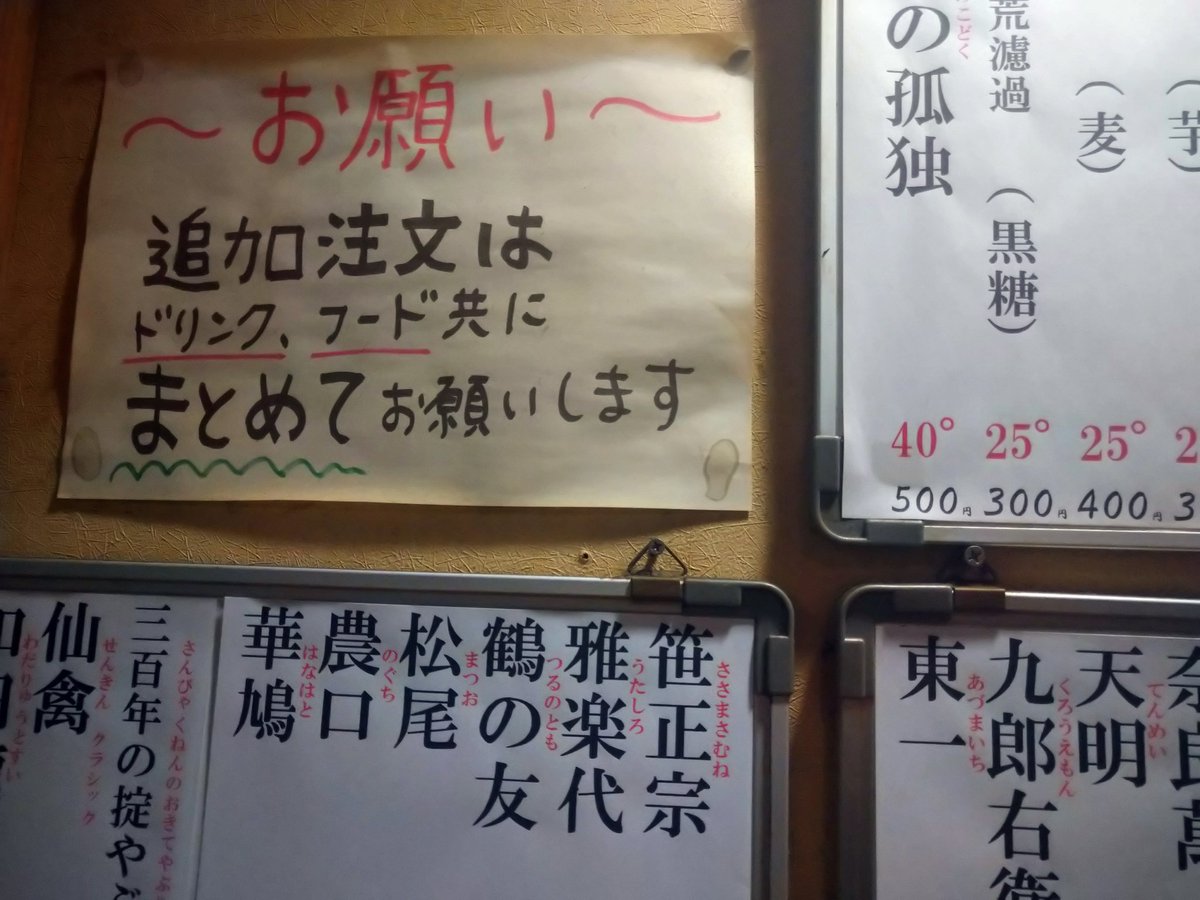 ～お願い～
追加注文は
ドリンク、フード共に
まとめてお願いします
（芋）
（麦）
25°
400円
荒濾過（黒糖）
25°
300円
の孤独
こどく
40°
500円
笹正宗
ささまさむね
雅楽代
うたしろ
鶴の友
つるのとも
松尾
まつお
農口
のぐち
華鳩
はなはと
三百年の掟や
さんびゃくねんのおきてやぶ
仙禽
せんきん クラシック
わたりゅうとすい
奈良萬
天明
てんめい
九郎右衛
くろうえもん
東一
あづまいち